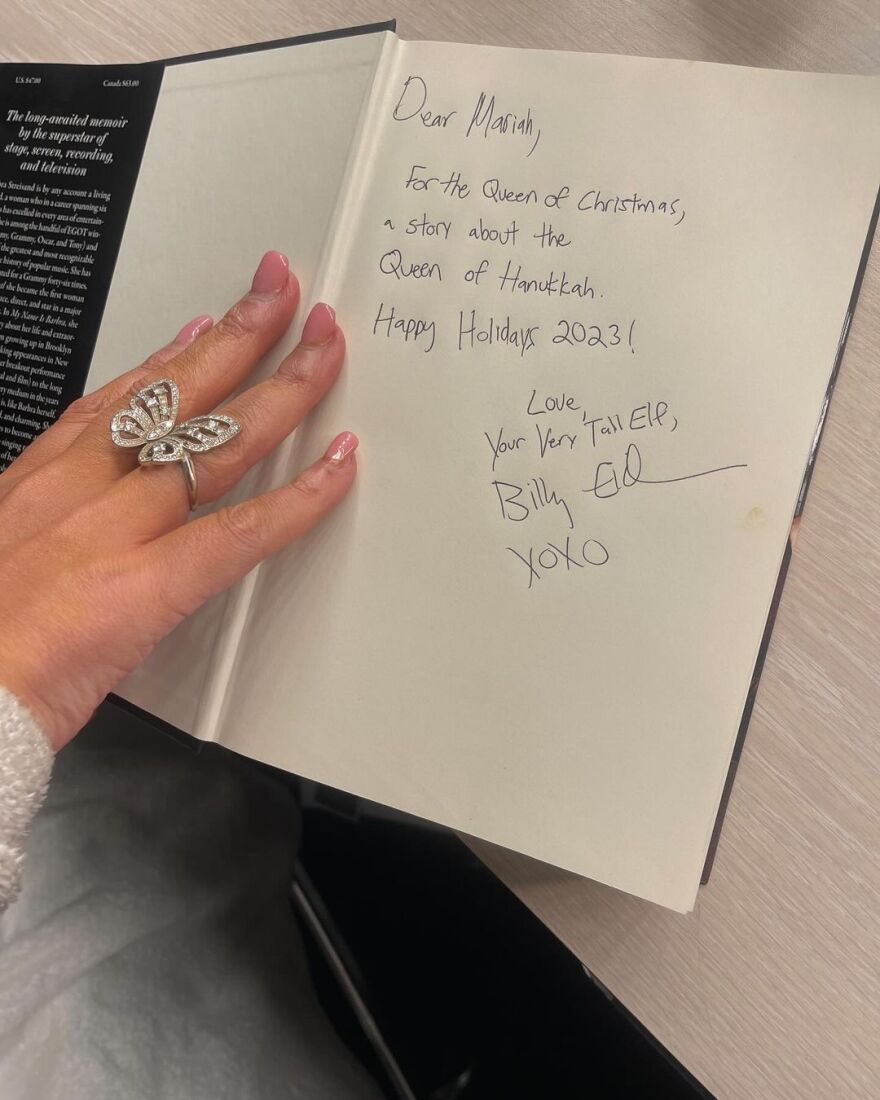 U.S. $47.00 Canada $63.00
The long-awaited memoir
by the superstar of
stage, screen, recording,
and television
Streisand is by any account a living
a woman who in a career spanning six
has excelled in every area of entertain-
is among the handful of EGOT win-
Grammy, Oscar, and Tony) and
the greatest and most recognizable
history of popular music. She has
for a Grammy forty-six times,
she became the first woman
direct, and star in a major
In My Name Is Barbra, she
about her life and extraor-
growing up in Brooklyn
appearances in New
breakout performance
and film) to the long
medium in the years
is, like Barbra herself,
and charming. She
to become
singing
Dear Mariah,
For the Queen of Christmas,
a story about the
Queen of Hanukkah.
Happy Holidays 2023!
Love,
Your Very Tall Elf,
Billy
XOXO